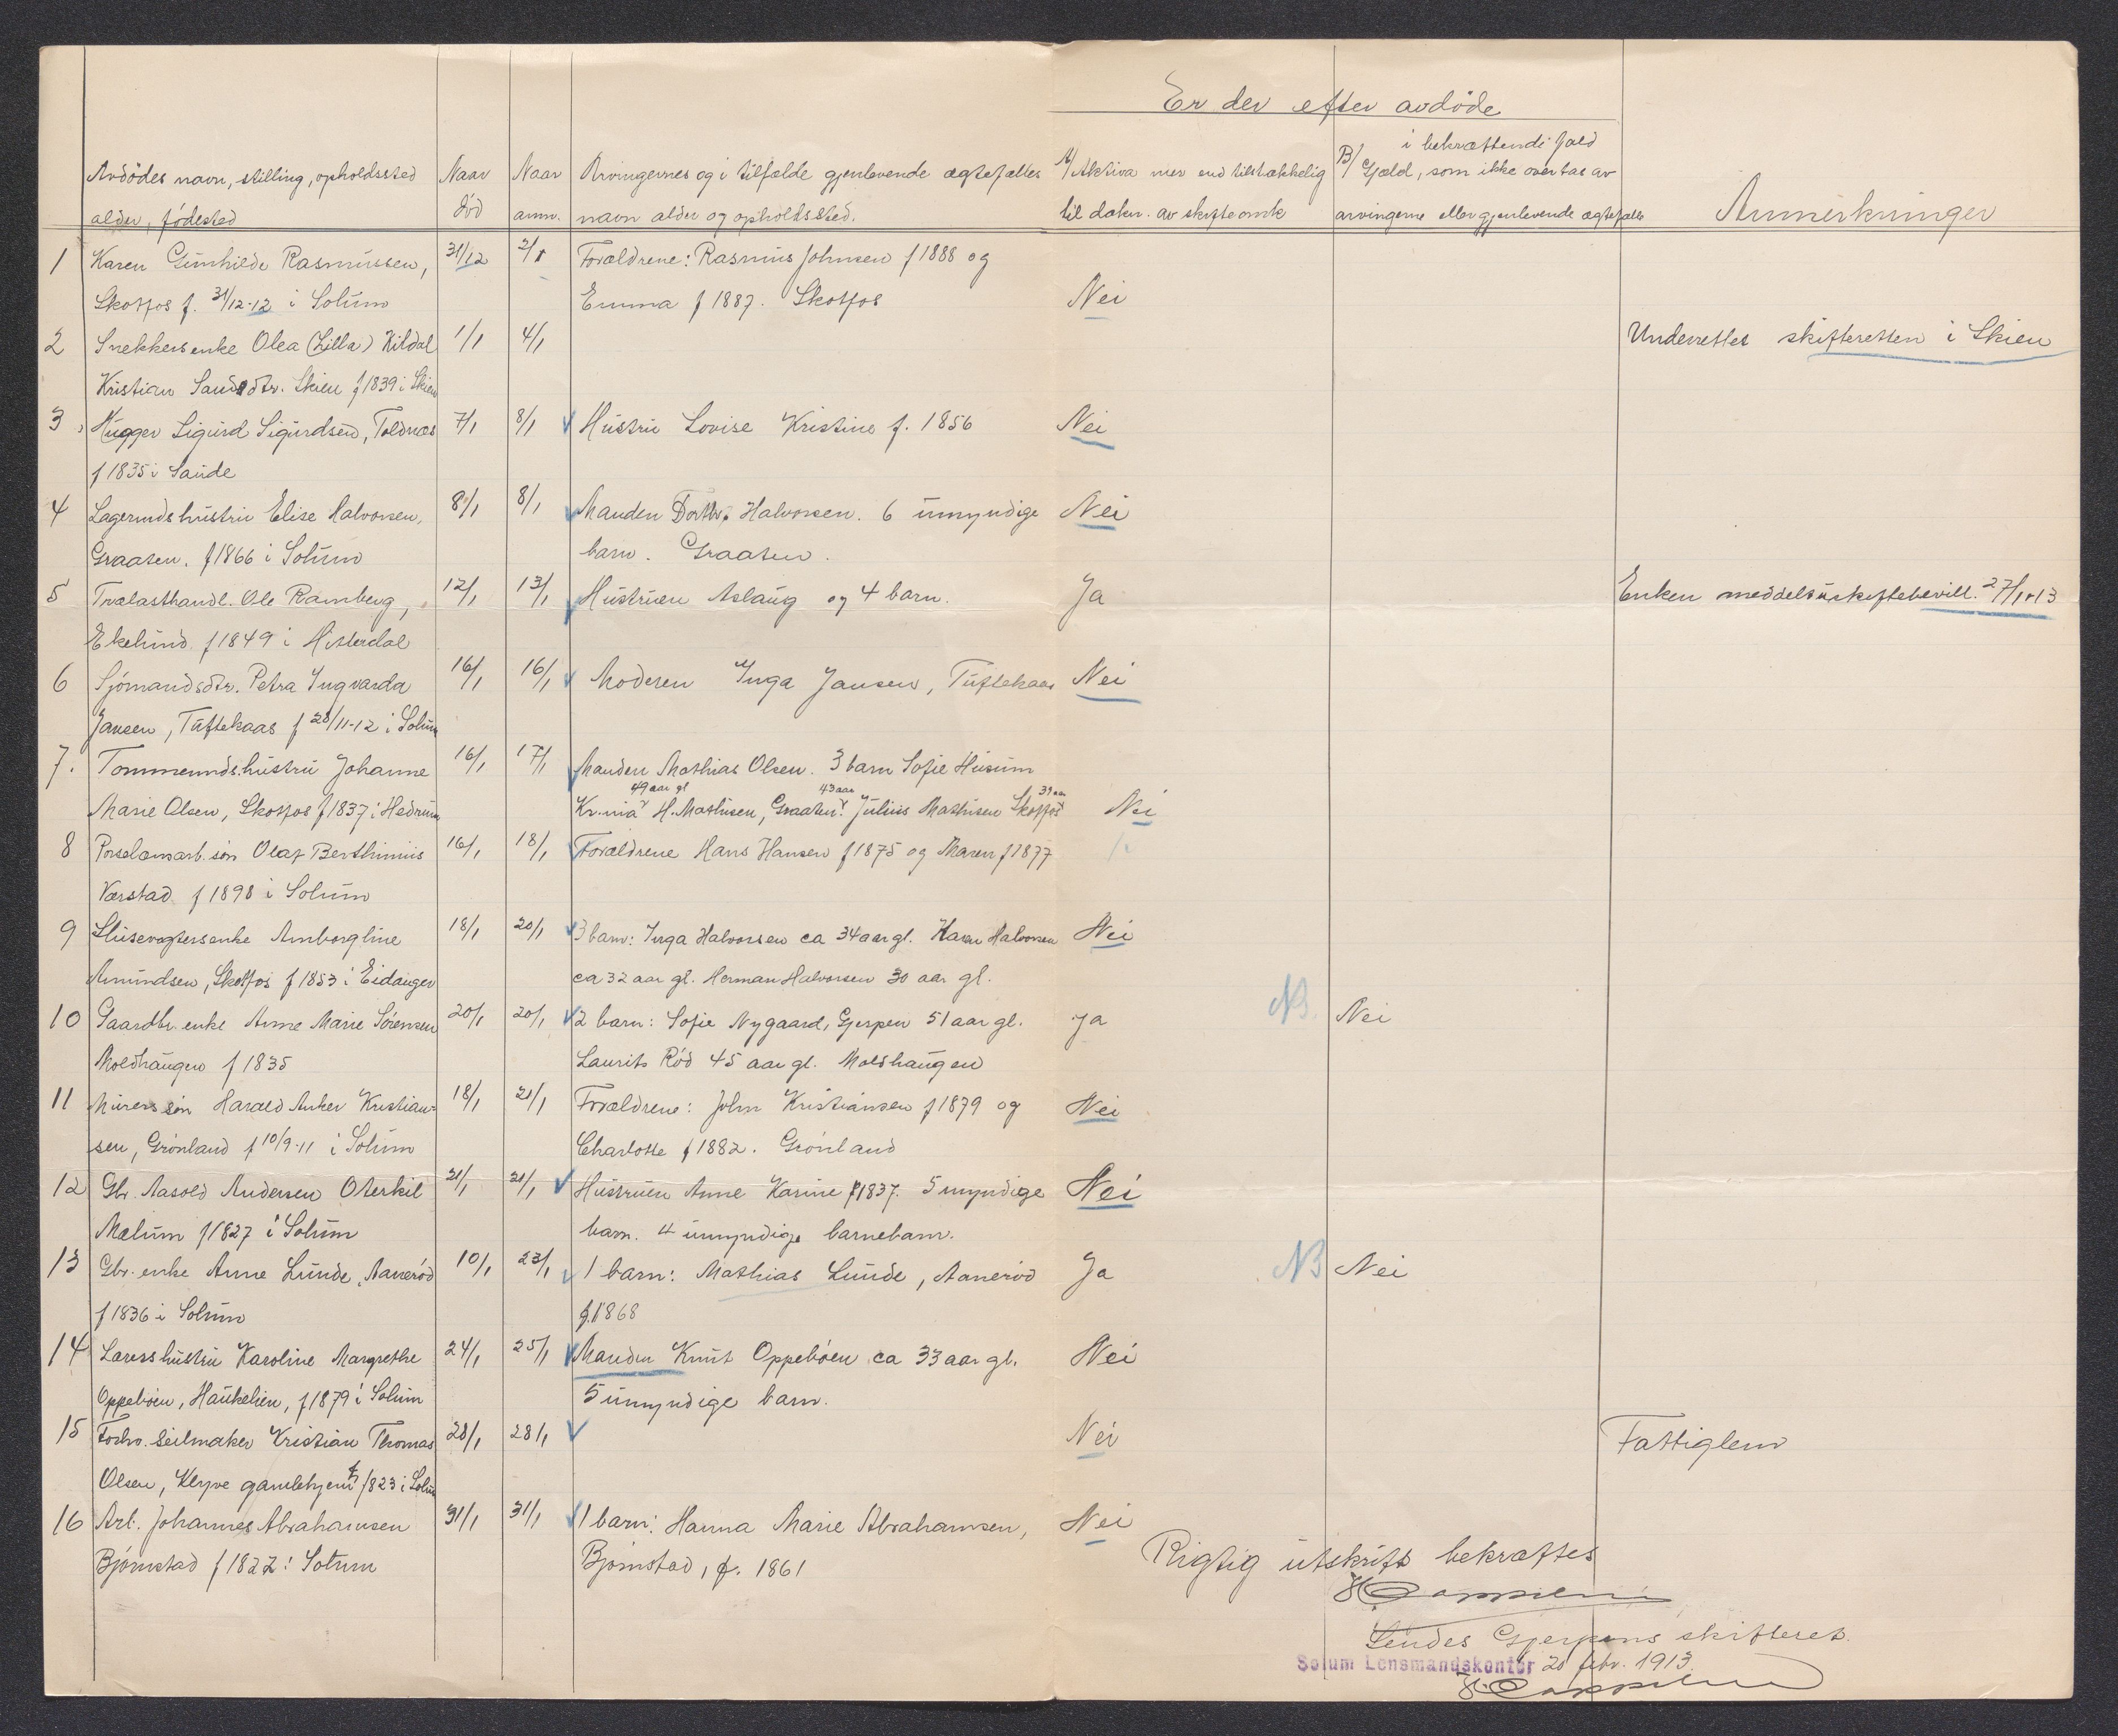 Er der efter avdöde
Avdödes navn, stilling, opholdssted
alder, födested
Naar
död
Naar
anm.
Arvingernes og i tilfælde gjenlevende ægtefælles
navn alder og opholdssted.
A/ Aktiva mer end tilstrækkelig
til dækn. av skifteomk
B/ i bekræftende fald
Gjæld, som ikke overtas av
arvingerne eller gjenlevende ægtefælle
Anmerkninger
1 Karen Gunhilde Rasmussen, 31/12 2/1 Forældrene: Rasmus Johnsen f 1888 og
Skotfos f. 31/12-12 i Solum Emma f 1887. Skotfos Nei
2 Snekkersenke Olea (Lilla) Kildal 1/1 4/1 Underettet skifteretten i Skien
Kristian Sandsdtr. Skien f 1839 i Skien
3 Hugger Sigurd Sigurdsen, Toldnæs 7/1 8/1 Hustru Lovise Kristine f. 1856 Nei
f 1835 i Saude
4 Lagermds hustru Elise Halvorsen, 8/1 8/1 Manden Halvorsen. 6 umyndige Nei
Graaten. f 1866 i Solum barn. Graaten.
5 Trælasthandl. Ole Ramberg, 12/1 13/1 Hustruen Aslaug og 4 barn. Ja Enken meddelt uskiftebevill. 27/1-13
Ekelund f 1849 i Hitterdal
6 Sjömandsdtr. Petra Ingvarda 16/1 16/1 Moderen Inga Jansen, Tuftekaas Nei
Jansen, Tuftekaas f 28/11-12 i Solum
7. Tømmermds. hustru Johanne 16/1 17/1 Manden Mathias Olsen. 3 barn Sofie Husum
49 aar gl 43 aar 39 aar
Marie Olsen, Skotfos f 1837 i Hedrum Kr.nia H. Mathisen, Graaten. Julius Mathisen Skotfos Nei
8 Porselænarb. sön Olaf Berthinius 16/1 18/1 Forældrene Hans Hansen f 1875 og Maren f 1877
Værstad f 1898 i Solum
9 Slusevogtersenke Amborgline 18/1 20/1 3 barn: Inga Halvorsen ca 34 aar gl. Karen Halvorsen Nei
Amundsen, Skotfos f 1853 i Eidanger ca 32 aar gl. Herman Halvorsen 30 aar gl.
10 Gaardbr. enke Anne Marie Sörensen 20/1 20/1 2 barn: Sofie Nygaard, Gjerpen 51 aar gl. Ja NB Nei
Moldhaugen f 1835 Laurits Röd 45 aar gl. Moldhaugen
11 Murers sön Harald Anker Kristian- 18/1 21/1 Forældrene: John Kristiansen f 1879 og Nei
sen, Grönland f 10/9-11 i Solum Charlotte f 1882. Grönland
12 Gbr. Aasold Andersen Oterkil 21/1 21/1 Hustruen Anne Karine f 1837. 5 myndige Nei
Mælum f 1827 i Solum barn. 4 umyndige barnebarn.
13 Gbr. enke Anne Lunde, Aaneröd 10/1 23/1 1 barn: Mathias Lunde, Aaneröd Ja NB Nei
f 1836 i Solum f. 1868
14 Lærers hustru Karoline Margrethe 24/1 25/1 Manden Knut Oppeböen ca 33 aar gl. Nei
Oppeböen, Haukelien, f 1879 i Solum 5 umyndige barn.
15 Forhv. Seilmaker Kristian Thomas 28/1 28/1 Nei Fattiglem
Olsen, Klyve gamlehjem f 1823 i Solum
16 Arb. Johannes Abrahamsen 31/1 31/1 1 barn: Hanna Marie Abrahamsen, Nei
Björnstad f 1822 i Solum Björnstad, f. 1861
Rigtig utskrift bekræftes
H Cappelen
Sendes Gjerpens skifteret.
Solum Lensmandskontor 20 febr. 1913.
H. Cappelen